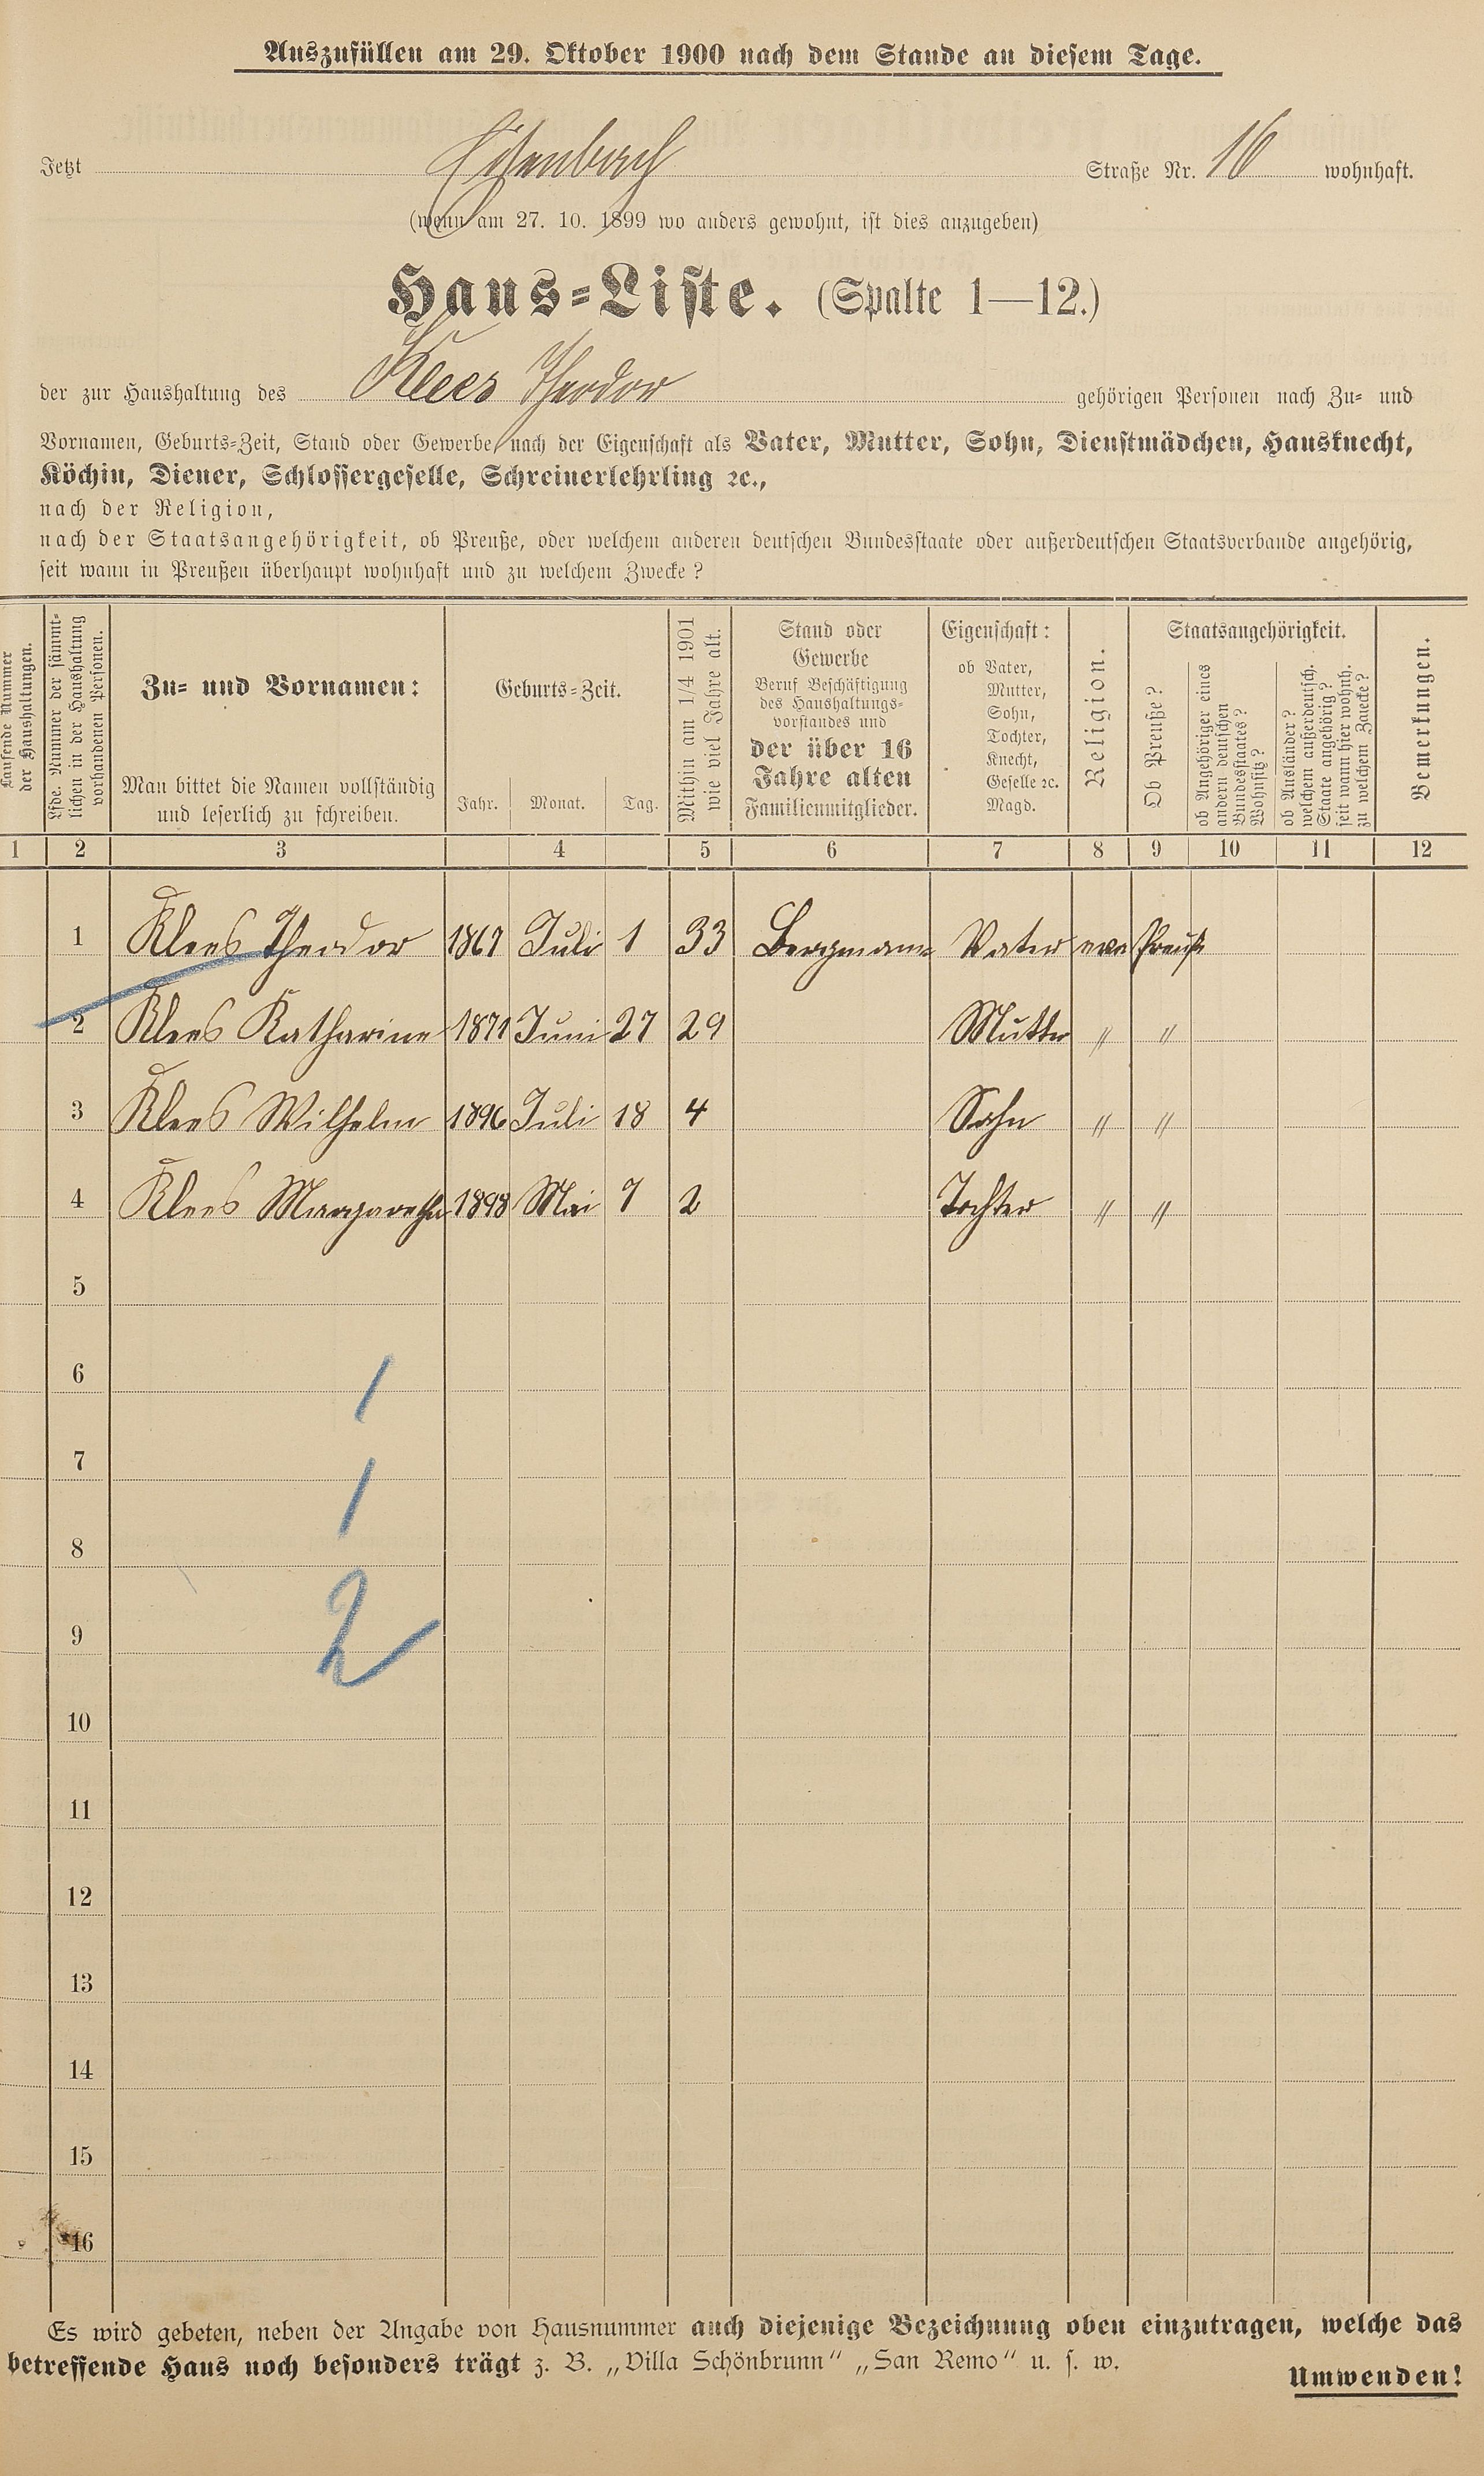 Auszufüllen am 29. Oktober 1900 nach dem Stande an diesem Tage.
Jetzt Eisenbach Straße Nr. 16 wohnhaft.
(wenn am 27. 10. 1899 wo anders gewohnt, ist dies anzugeben)
Haus-Liste. (Spalte 1—12.)
der zur Haushaltung des Klees Theodor gehörigen Personen nach Zu- und
Vornamen, Geburts-Zeit, Stand oder Gewerbe, nach der Eigenschaft als Vater, Mutter, Sohn, Dienstmädchen, Hausknecht,
Köchin, Diener, Schlossergeselle, Schreinerlehrling ꝛc.,
nach der Religion,
nach der Staatsangehörigkeit, ob Preuße, oder welchem anderen deutschen Bundesstaate oder außerdeutschen Staatsverbande angehörig,
seit wann in Preußen überhaupt wohnhaft und zu welchem Zwecke?
Laufende Nummer
der Haushaltungen.
Lfde. Nummer der sämmt-
lichen in der Haushaltung
vorhandenen Personen.
Zu- und Vornamen:
Man bittet die Namen vollständig
und leserlich zu schreiben.
Geburts-Zeit.
Jahr. Monat. Tag.
Mithin am 1/4 1901
wie viel Jahre alt.
Stand oder
Gewerbe
Beruf Beschäftigung
des Haushaltungs-
vorstandes und
der über 16
Jahre alten
Familienmitglieder.
Eigenschaft:
ob Vater,
Mutter,
Sohn,
Tochter,
Knecht,
Geselle ꝛc.
Magd.
Religion.
Staatsangehörigkeit.
Ob Preuße?
ob Angehöriger eines
andern deutschen
Bundesstaates?
Wohnsitz?
ob Ausländer?
welchem außerdeutsch.
Staate angehörig?
seit wann hier wohnh.
zu welchem Zwecke?
Bemerkungen.
1 2 3 4 5 6 7 8 9 10 11 12
1 Klees Theodor 1867 Juli 1 33 Bergmann Vater eva Preuße
2 Klees Katharine 1871 Juni 27 29 Mutter " "
3 Klees Wilhelm 1896 Juli 18 4 Sohn " "
4 Klees Margaretha 1898 Mai 7 2 Tochter " "
5
6
1
7
1
8
2
9
10
11
12
13
14
15
16
Es wird gebeten, neben der Angabe von Hausnummer auch diejenige Bezeichnung oben einzutragen, welche das
betreffende Haus noch besonders trägt z. B. „Villa Schönbrunn“ „San Remo“ u. s. w.
Umwenden!